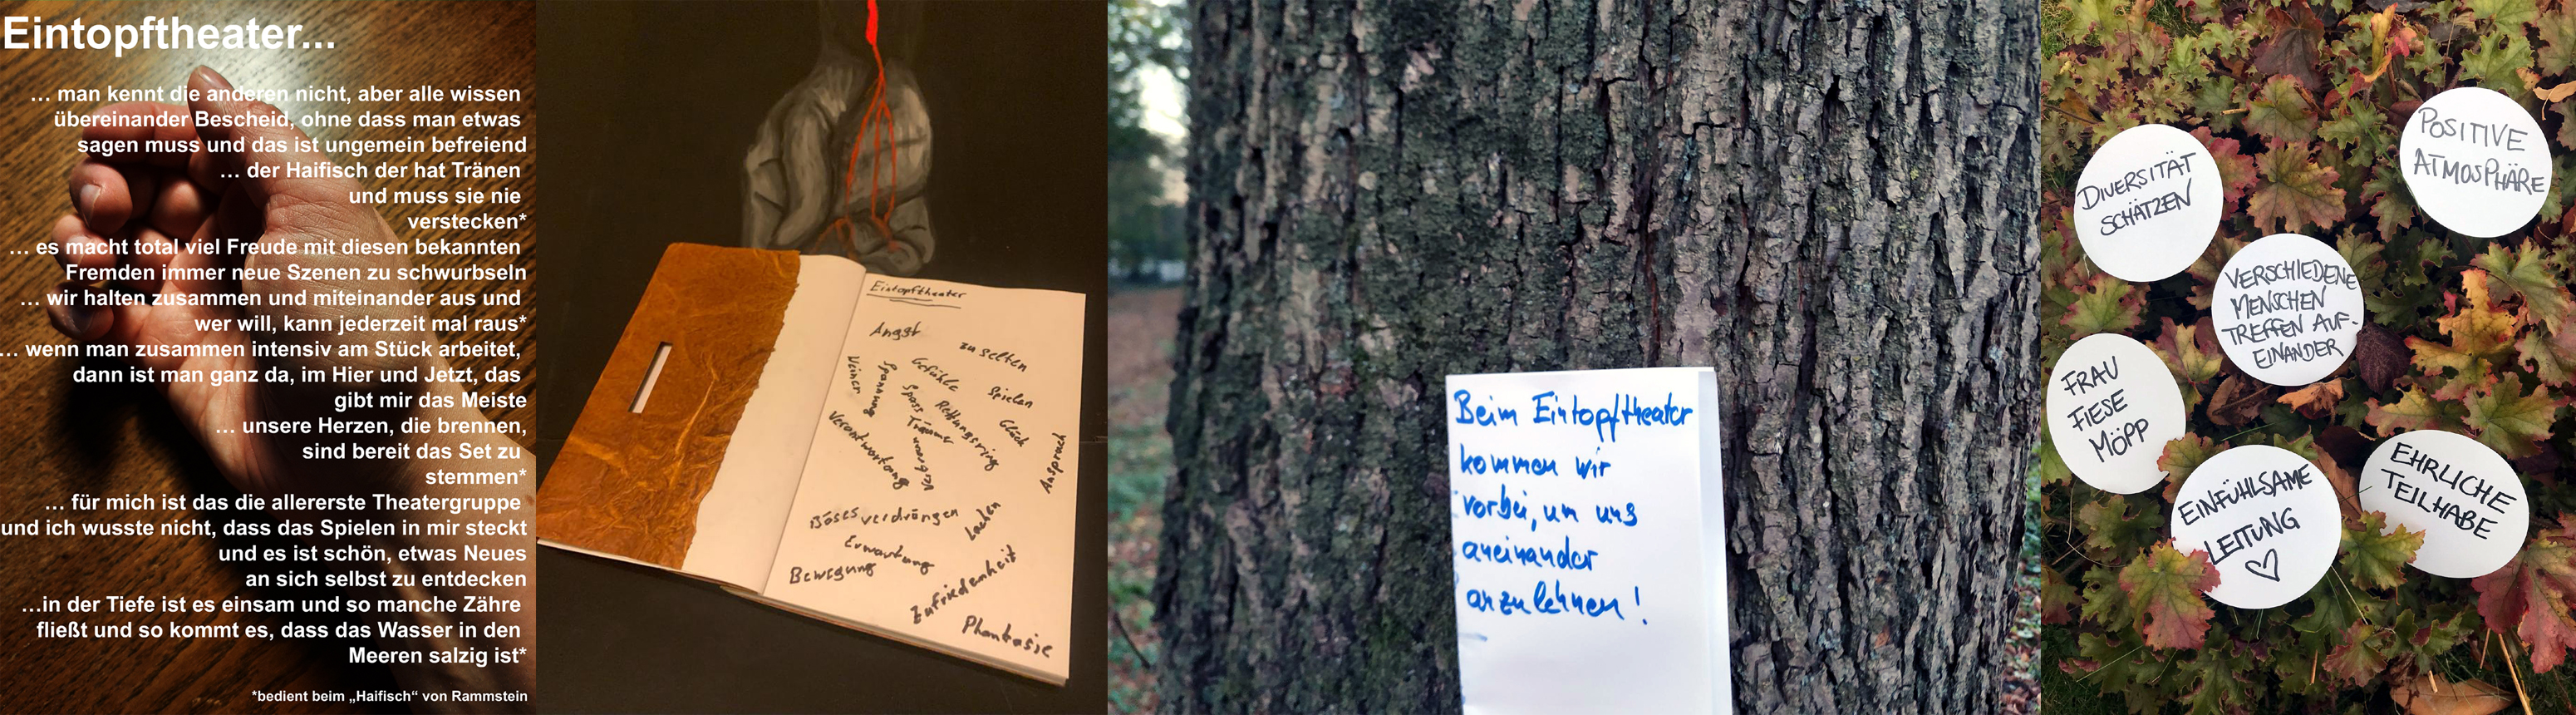 Eintopftheater...
... man kennt die anderen nicht, aber alle wissen
übereinander Bescheid, ohne dass man etwas
sagen muss und das ist ungemein befreiend
... der Haifisch der hat Tränen
und muss sie nie
verstecken*
... es macht total viel Freude mit diesen bekannten
Fremden immer neue Szenen zu schwurbseln
... wir halten zusammen und miteinander aus und
wer will, kann jederzeit mal raus*
... wenn man zusammen intensiv am Stück arbeitet,
dann ist man ganz da, im Hier und Jetzt, das
gibt mir das Meiste
... unsere Herzen, die brennen,
sind bereit das Set zu
stemmen*
... für mich ist das die allererste Theatergruppe
und ich wusste nicht, dass das Spielen in mir steckt
und es ist schön, etwas Neues
an sich selbst zu entdecken
...in der Tiefe ist es einsam und so manche Zähre
fließt und so kommt es, dass das Wasser in den
Meeren salzig ist*
*bedient beim „Haifisch“ von Rammstein
Eintopftheater
Angst
zu selten
Weinen
Spannung
Gefühle
Spass
Spielen
Rettungsring
Träume
Glück
Verantwortung
Anspruch
Böses verdrängen
Lachen
Erwartung
Bewegung
Zufriedenheit
Phantasie
Beim Eintopftheater
kommen wir
vorbei, um uns
aneinander
anzulehnen!
DIVERSITÄT
SCHÄTZEN
POSITIVE
ATMOSPHÄRE
VERSCHIEDENE
MENSCHEN
TREFFEN AUF-
EINANDER
FRAU
FIESE
MÖPP
EINFÜHLSAME
LEITUNG
EHRLICHE
TEILHABE